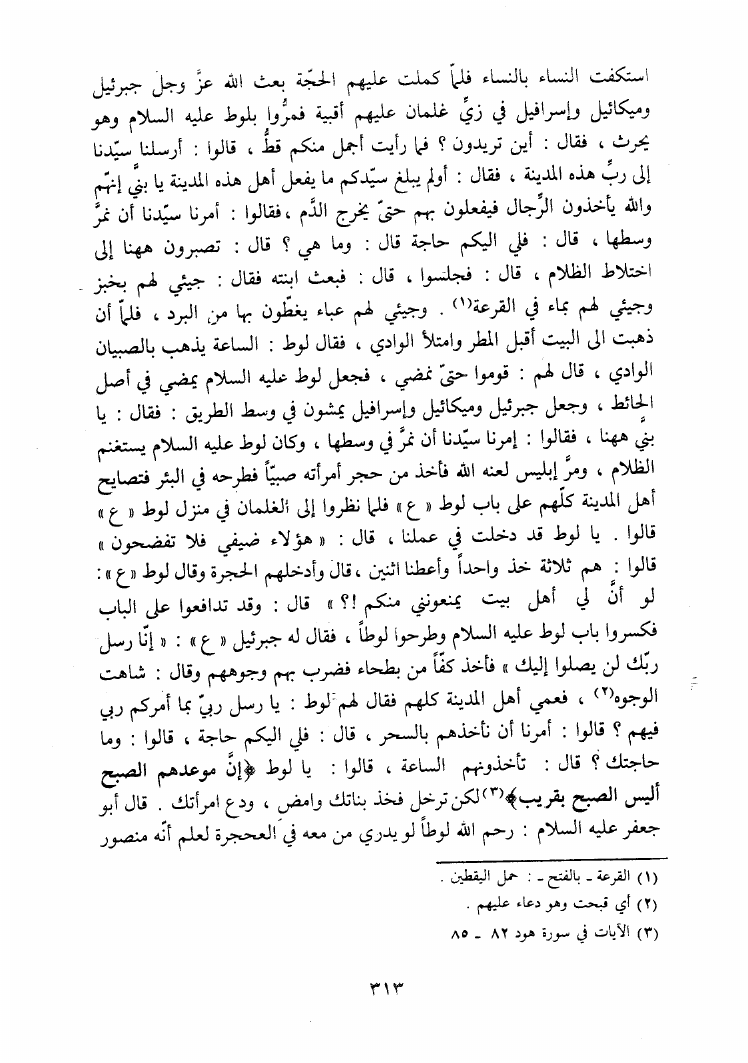 استكفت النساء بالنساء فلمّا كملت عليهم الحجّة بعث الله عزَّ وجل جبرئيل
وميكائيل وإسرافيل في زيِّ غلمان عليهم أقبية فمرُّوا بلوط عليه السلام وهو
يحرث ، فقال : أين تريدون ؟ فما رأيت أجمل منكم قطُّ ، قالوا : أرسلنا سيّدنا
إلى ربِّ هذه المدينة ، فقال : أولم يبلغ سيّدكم ما يفعل أهل هذه المدينة يا بنيَّ إنهّم
والله يأخذون الرِّجال فيفعلون بهم حتىّ يخرج الدَّم ،فقالوا : أمرنا سيّدنا أن نمرَّ
وسطها ، قال : فلي اليكم حاجة قال : وما هي ؟ قال : تصبرون ههنا إلى
اختلاط الظلام ، قال : فجلسوا ، قال : فبعث ابنته فقال : جيئي لهم بخبز
وجيئي لهم بماء في القرعة(١) . وجيئي لهم عباء يغطّون بها من البرد ، فلمّا أن
ذهبت الى البيت أقبل المطر وامتلأ الوادي ، فقال لوط : الساعة يذهب بالصبيان
الوادي ، قال لهم : قوموا حتىّ نمضي ، فجعل لوط عليه السلام يمضي في أصل
الحائط ، وجعل جبرئيل وميكائيل وإسرافيل يمشون في وسط الطريق : فقال : يا
بنيَّ ههنا ، فقالوا : إمرنا سيّدنا أن نمرَّ في وسطها ، وكان لوط عليه السلام يستغنم
الظلام ، ومرَّ إبليس لعنه الله فأخذ من حجر أمرأته صبيّاً فطرحه في البئر فتصايح
أهل المدينة كلّهم على باب لوط « ع » فلما نظروا إلى الغلمان في منزل لوط « ع »
قالوا . يا لوط قد دخلت في عملنا ، قال : « هؤلاء ضيفي فلا تفضحون »
قالوا : هم ثلاثة خذ واحداً وأعطنا اثنين ،قال وأدخلهم الحجرة وقال لوط «ع» :
لو أنَّ لي أهل بيت يمنعونني منكم !؟ » قال : وقد تدافعوا على الباب
فكسروا باب لوط عليه السلام وطرحوا لوطاً ، فقال له جبرئيل « ع » : « إنّا رسل
ربّك لن يصلوا إليك » فأخذ كفّاً من بطحاء فضرب بهم وجوههم وقال : شاهت
الوجوه(٢) ، فعمي أهل المدينة كلهم فقال لهم لوط : يا رسل ربيّ بما أمركم ربي
فيهم ؟ قالوا : أمرنا أن نأخذهم بالسحر ، قال : فلي اليكم حاجة ، قالوا : وما
حاجتك ؟ قال : تأخذونهم الساعة ، قالوا : يا لوط ﴿إنَّ موعدهم الصبح
أليس الصبح بقريب﴾(٣)لكن ترحل فخذ بناتك وامض ، ودع امرأتك . قال أبو
جعفر عليه السلام : رحم الله لوطاً لو يدري من معه في العحجرة لعلم أنّه منصور
(١) القرعة ـ بالفتح ـ : حمل اليقطين .
(٢) أي قبحت وهو دعاء عليهم .
(٣) الآيات في سورة هود ٨٢ ـ ٨٥
٣١٣